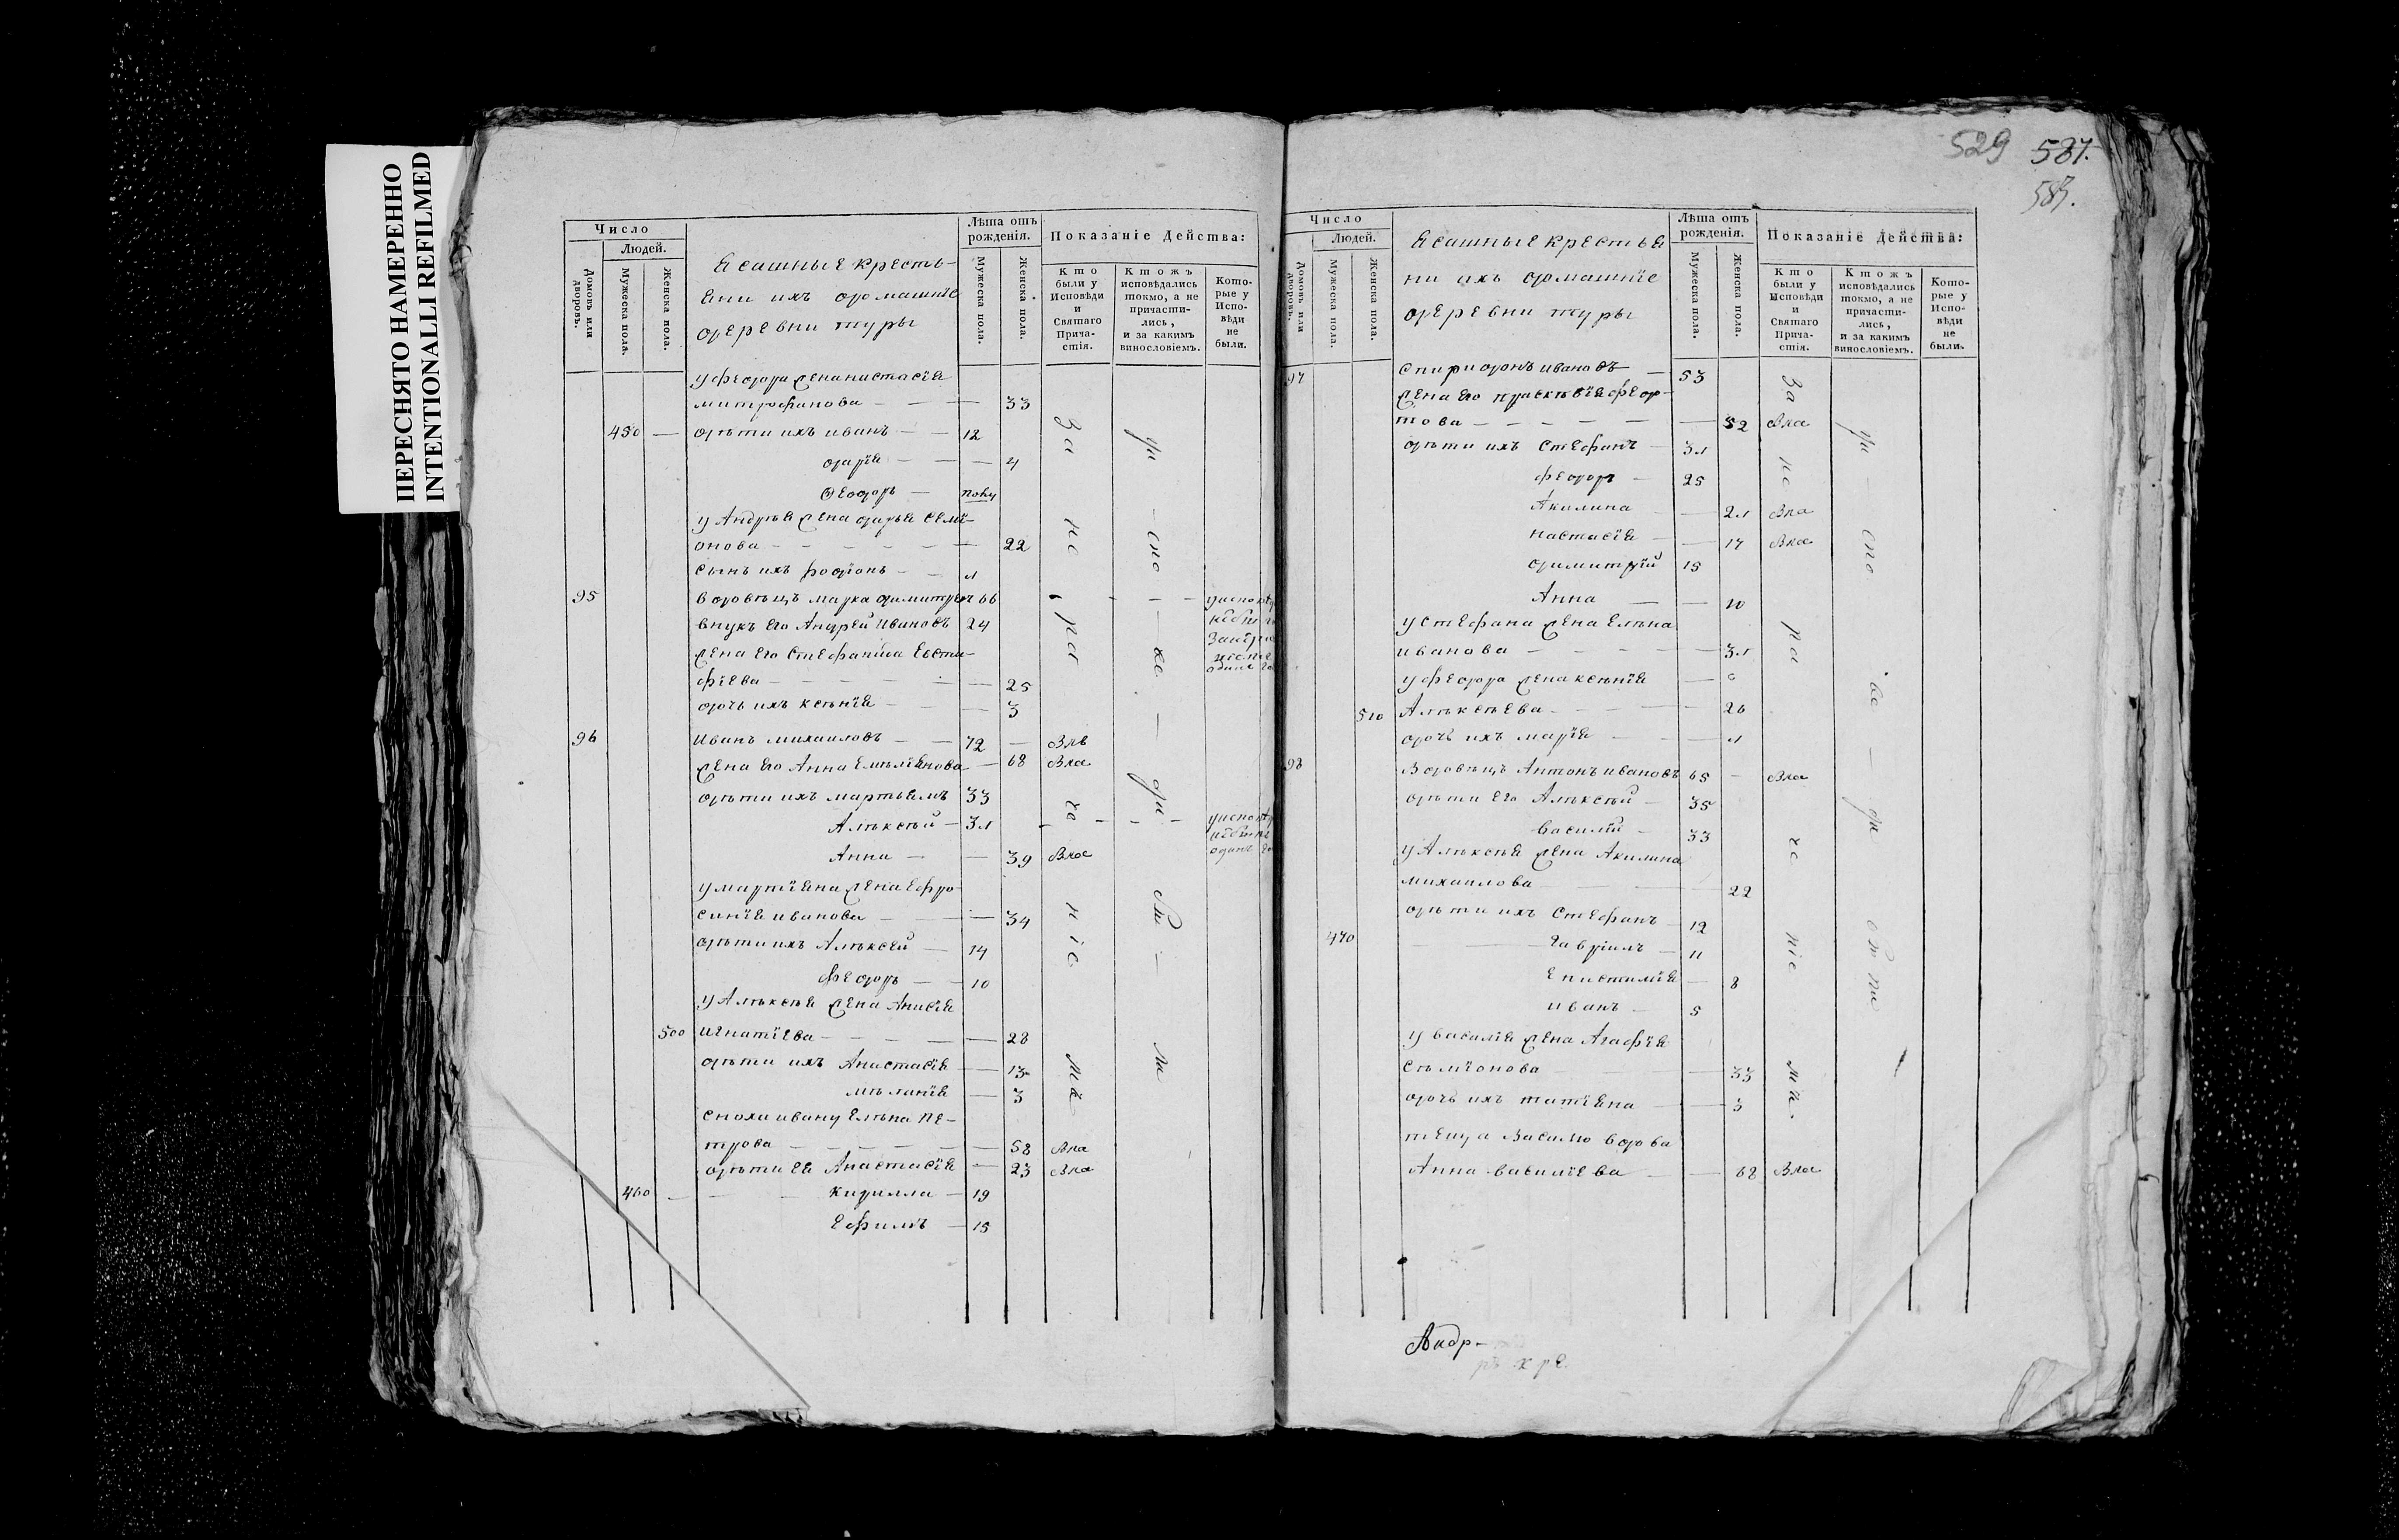 ПЕРЕСНЯТО НАМЕРЕННО
INTENTIONALLI REFILMED
Число
Людей.
Домовъ или дворовъ.
Мужеска пола.
Женска пола.
Ясашные кресть-
яни ихъ домашнïе
деревни туры
Лѣта отъ рожденïя.
Мужеска пола.
Женска пола.
Показанïе Действа:
Кто были у Исповѣди и Святаго Прича-стïя.
Ктожъ исповѣдались токмо, а не причасти-лись, и за какимъ винословïемъ.
Кото-рые у Испо-вѣди не были.
у Феодора жена настасïя
митрофанова — — — 33
450 — дѣти ихъ иванъ — — 12
дарïя — — — 4
Ѳеодоръ —
у Андрѣя жена дарья семï-
онова — — — — — — 22
сынъ ихъ родïонъ — — 1
95 вдовецъ марка димитрïевъ 66
внукъ его Андрей Ивановъ 24
жена его Стефанида Евста-
фïева — — — — 25
дочь ихъ ксѣнïя — — — 3
96 Иванъ михаиловъ — — 72 —
жена его Анна Емѣлïянова — 68 Вла
дѣти ихъ мартьемъ 33
Алѣксѣй — 31
Анна — — 39 Вла
у мартïяна жена Ефро-
синïя иванова — — — 34
дѣти ихъ Алѣксѣй — 14
Феодоръ — — 10
у Алѣксѣя жена Анисïя
500 Игнатïева — — — — — 28
дѣти ихъ Анастасïя — 13
мѣланïя — 3
сноха ивану Елѣна пе-
трова — — — — — — 58 Вла
дѣти ея Анастасïя — 23 Вла
460 — — — Кирилла — 19
Ефимъ — 15
529 587.
Число
Людей.
Домовъ или дворовъ.
Мужеска пола.
Женска пола.
Ясашные крестья
ни ихъ домашнïе
деревни туры
Лѣта отъ рожденïя.
Мужеска пола.
Женска пола.
Показанïе Действа:
Кто были у Исповѣди и Святаго Прича-стïя.
Ктожъ исповѣдались токмо, а не причасти-лись, и за какимъ винословïемъ.
Кото-рые у Испо-вѣди не были.
97 Спиридонъ ивановъ — 53
жена его прасковïя Федо-
това — — — — — — 52 Вла
дѣти ихъ Стефанъ — 31
Феодоръ — 25
Акилина — — 21 Вла
настасïя — — 17 Вла
димитрïй 15
Анна — — 10
у Стефана жена Елѣна
иванова — — — — — 31
у Феодора жена ксѣнïя —
510 Алѣксѣева — — — — 26
дочь ихъ марïя — — — 1
98 Вдовецъ Антонъ ивановъ 65 — Вла
дѣти его Алѣксѣй — 35
Василïй — 33
у Алѣксѣя жена Акилина
михаилова — — — 22
дѣти ихъ Стефанъ — 12
470 — Гаврïилъ — 11
Епистимïя — 8
иванъ — 5
у василïя жена Агафïя
сѣмïонова — — 33
дочь ихъ татïяна — — 3
теща Василю вдова
Анна василïева — — 62 Вла